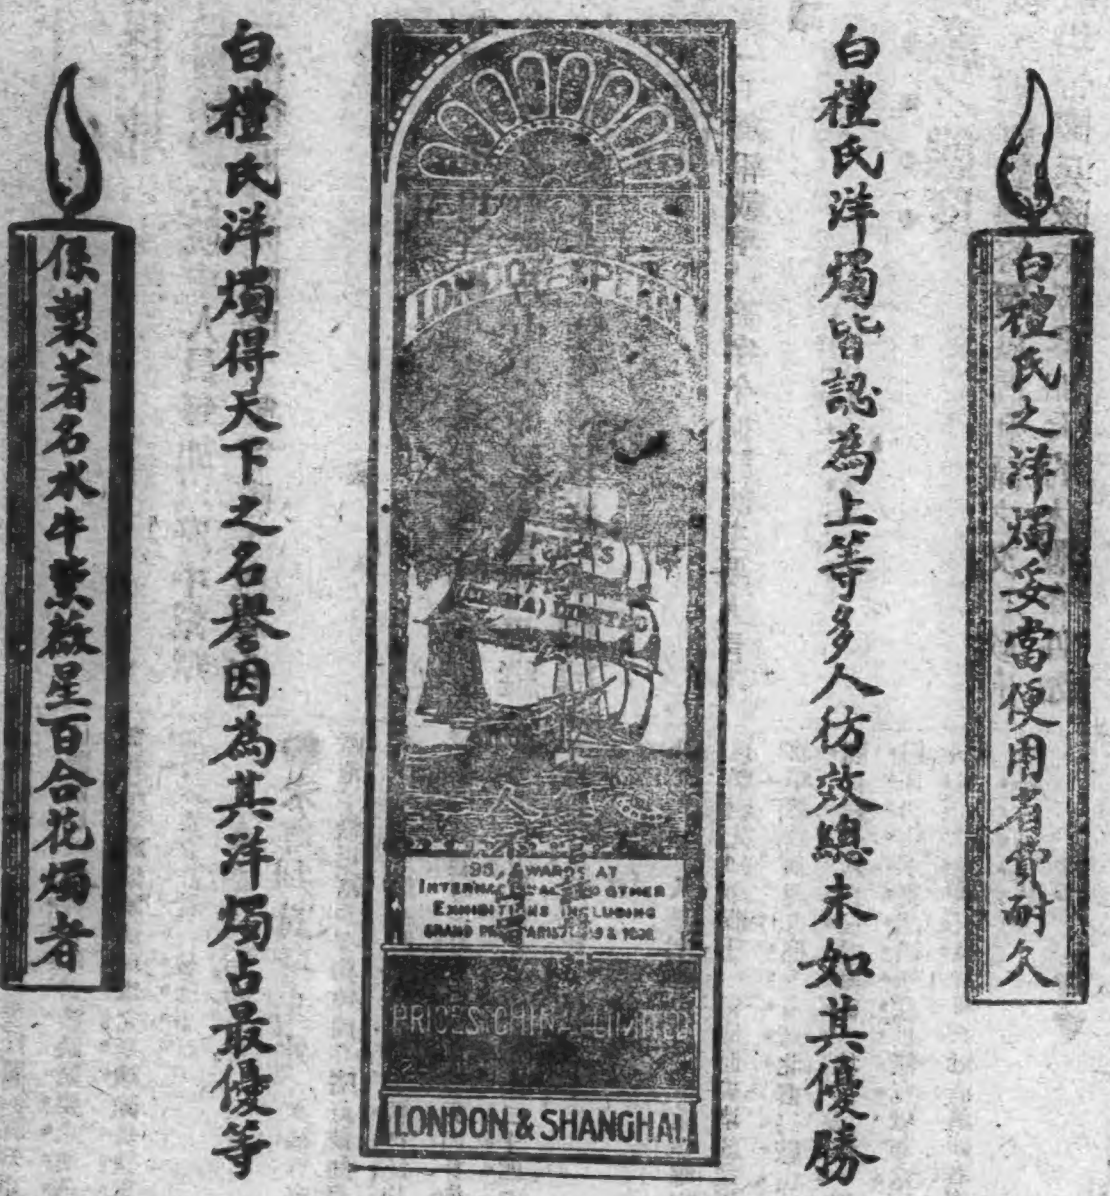 白禮氏之洋燭妥當便用省費耐久
白禮氏洋燭皆認為上等多人彷效總未如其優勝
PRICE'S
(CHINA)
AWARDS AT
INTERNATIONAL AND OTHER
EXHIBITIONS INCLUDING
GRAND
PRICES CHINA LIMITED
LONDON & SHANGHAI
白禮氏洋燭得天下之名譽因為其洋燭占最優等
係製著名水牛紫薇星百合花燭者